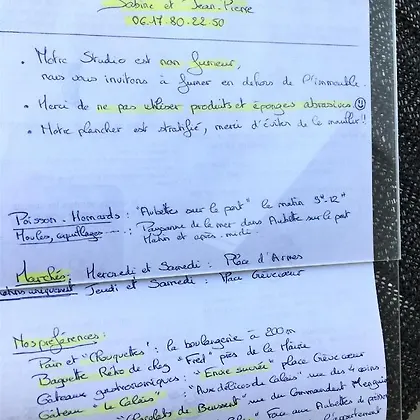 Sabine et Jean-Pierre
06.17.80.22.50
• Notre Studio est non fumeur,
nous vous invitons à fumer en dehors de l'immeuble.
• Merci de ne pas utiliser produits et éponges abrasives.
• Notre plancher est stratifié, merci d'éviter de le mouiller!!
Poisson - Homards : "Aubettes sur le port" le matin 9h-12h
Moules, coquillages : Paysanne de la mer dans Aubette sur le port
Matin et après-midi
Marchés: Mercredi et Samedi : Place d'Armes
uniquement Jeudi et Samedi : Place Crèvecoeur
Nos préférences:
Pain et "Chouquettes" : la boulangerie à 200m
Baguette Rétro de chez "Fred" près de la Mairie
Gâteaux gastronomiques : "Envie sucrée" place Crèvecoeur
Gâteau "le Calais" : "Aux délices de Calais" rue des 4 coins
de Beussent" rue du Commandant
face aux Aubettes à poisson